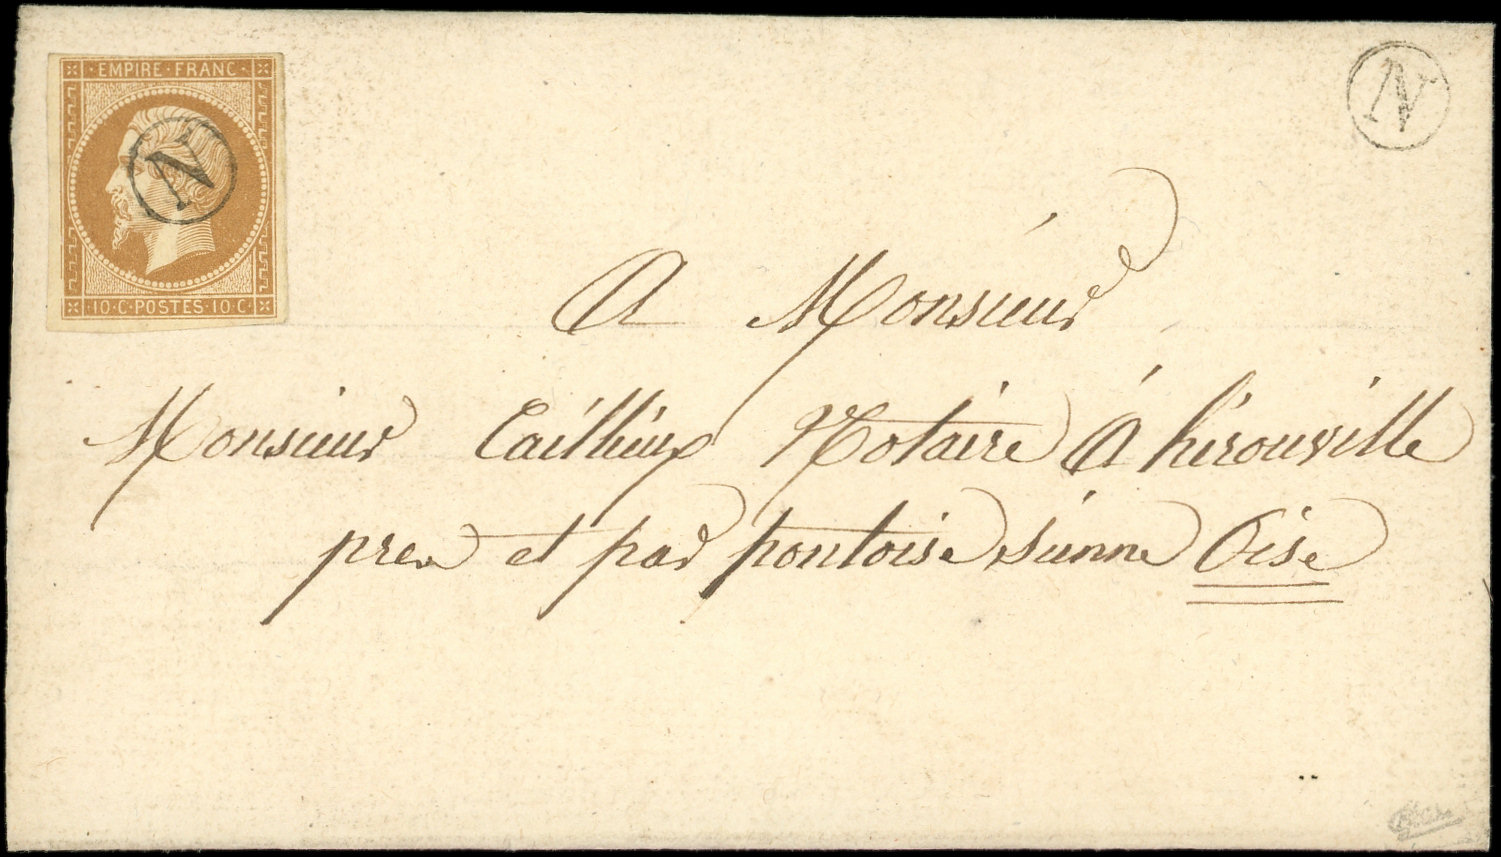 EMPIRE · FRANC ·
N
10 · C · POSTES · 10 · C ·
N
A Monsieur
Monsieur Cailleux Notaire A hérouville
pres et par pontoise Oise